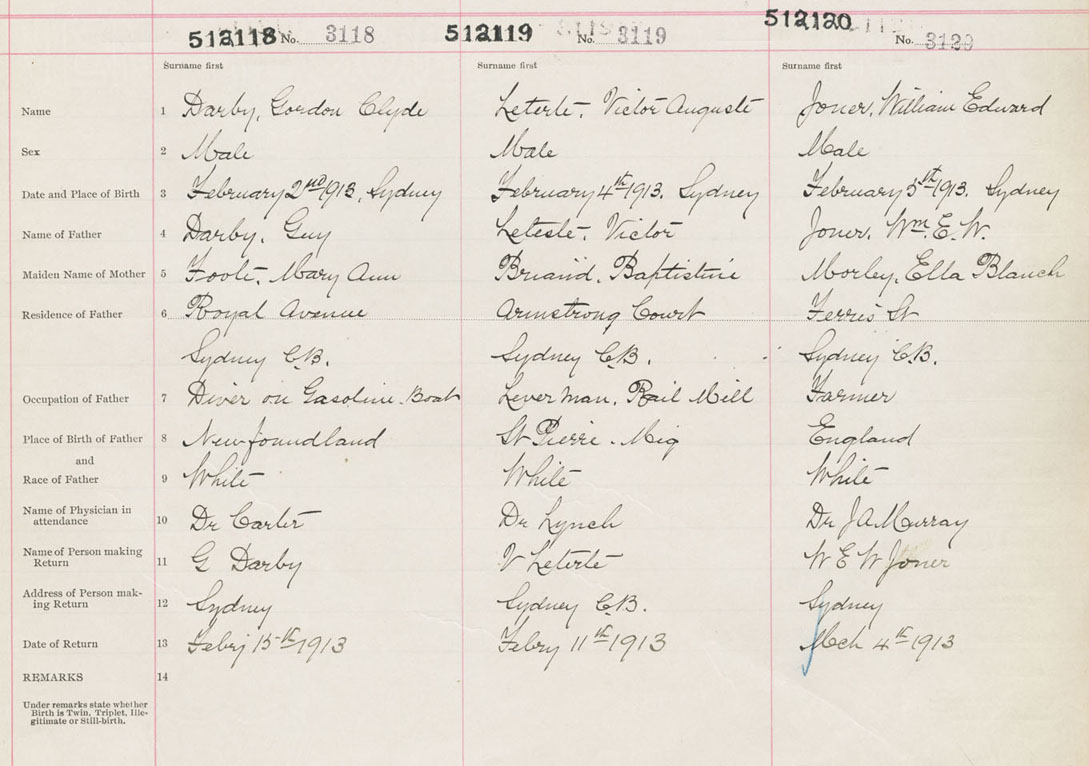 512118 No. 3118 512119 No. 3119 512120 No. 3120
Surname first Surname first Surname first
Name 1 Darby, Gordon Clyde Leterte, Victor Auguste Joner, William Edward
Sex 2 Male Male Male
Date and Place of Birth 3 February 2nd 1913, Sydney February 4th 1913. Sydney February 5th 1913. Sydney
Name of Father 4 Darby, Guy Leteste, Victor Joner, Wm E. W.
Maiden Name of Mother 5 Foote, Mary Ann Briand, Baptistine Morley, Ella Blanch
Residence of Father 6 Royal Avenue Armstrong Court Ferris St
Sydney C.B. Sydney C.B. Sydney C.B.
Occupation of Father 7 Diver on Gasoline Boat Lever Man, Rail Mill Farmer
Place of Birth of Father 8 Newfoundland St Pierre. Miq England
and
Race of Father 9 White White White
Name of Physician in
attendance 10 Dr Carter Dr Lynch Dr J A Murray
Name of Person making
Return 11 G Darby V Leterte W E W Joner
Address of Person mak-
ing Return 12 Sydney Sydney C.B. Sydney
Date of Return 13 Febry 15th 1913 Febry 11th 1913 Mch 4th 1913
REMARKS 14
Under remarks state whether
Birth is Twin, Triplet, Ille-
gitimate or Still-birth.